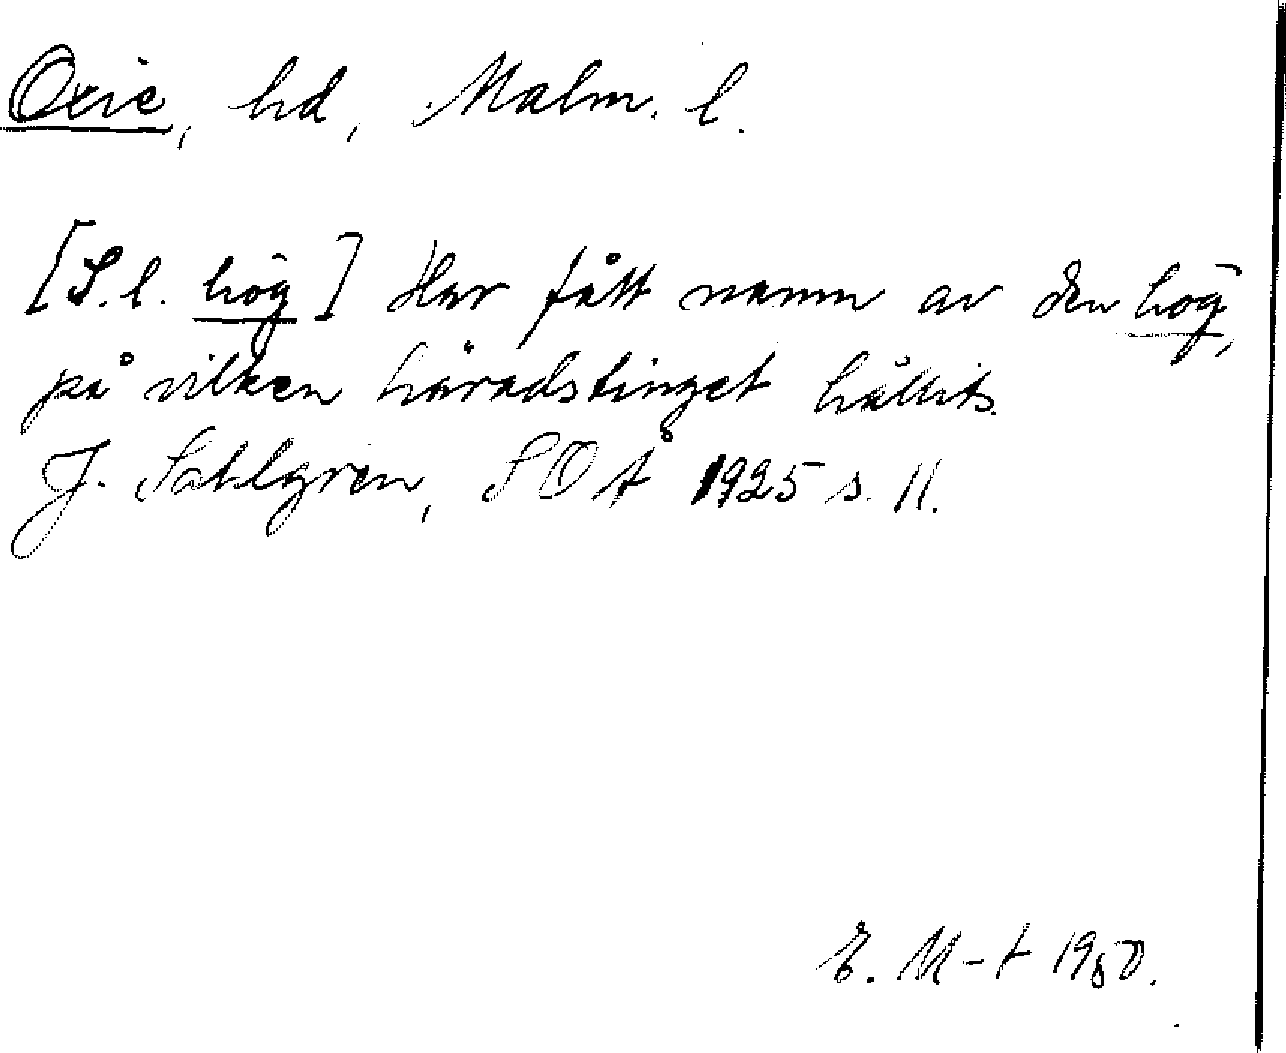 Oxie, hd, Malm. l.
[S.l. hög] Har fått namn av den hög,
på vilken häradstinget hållits.
J. Sahlgren, SOÅ 1925 s. 11.
E. M-t 1950.